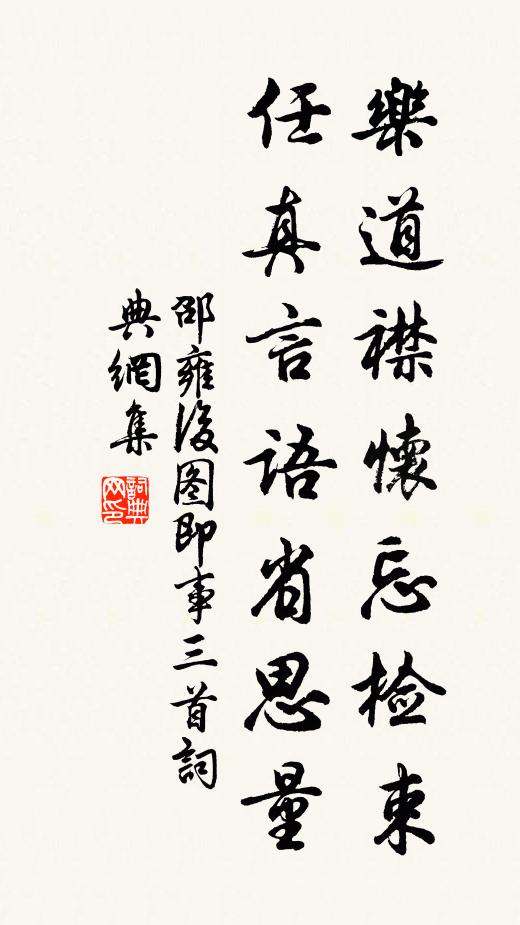 樂道襟懷忘检束
任真言語省思量
邵雍後图即事三首詞
典網集
詞典網印